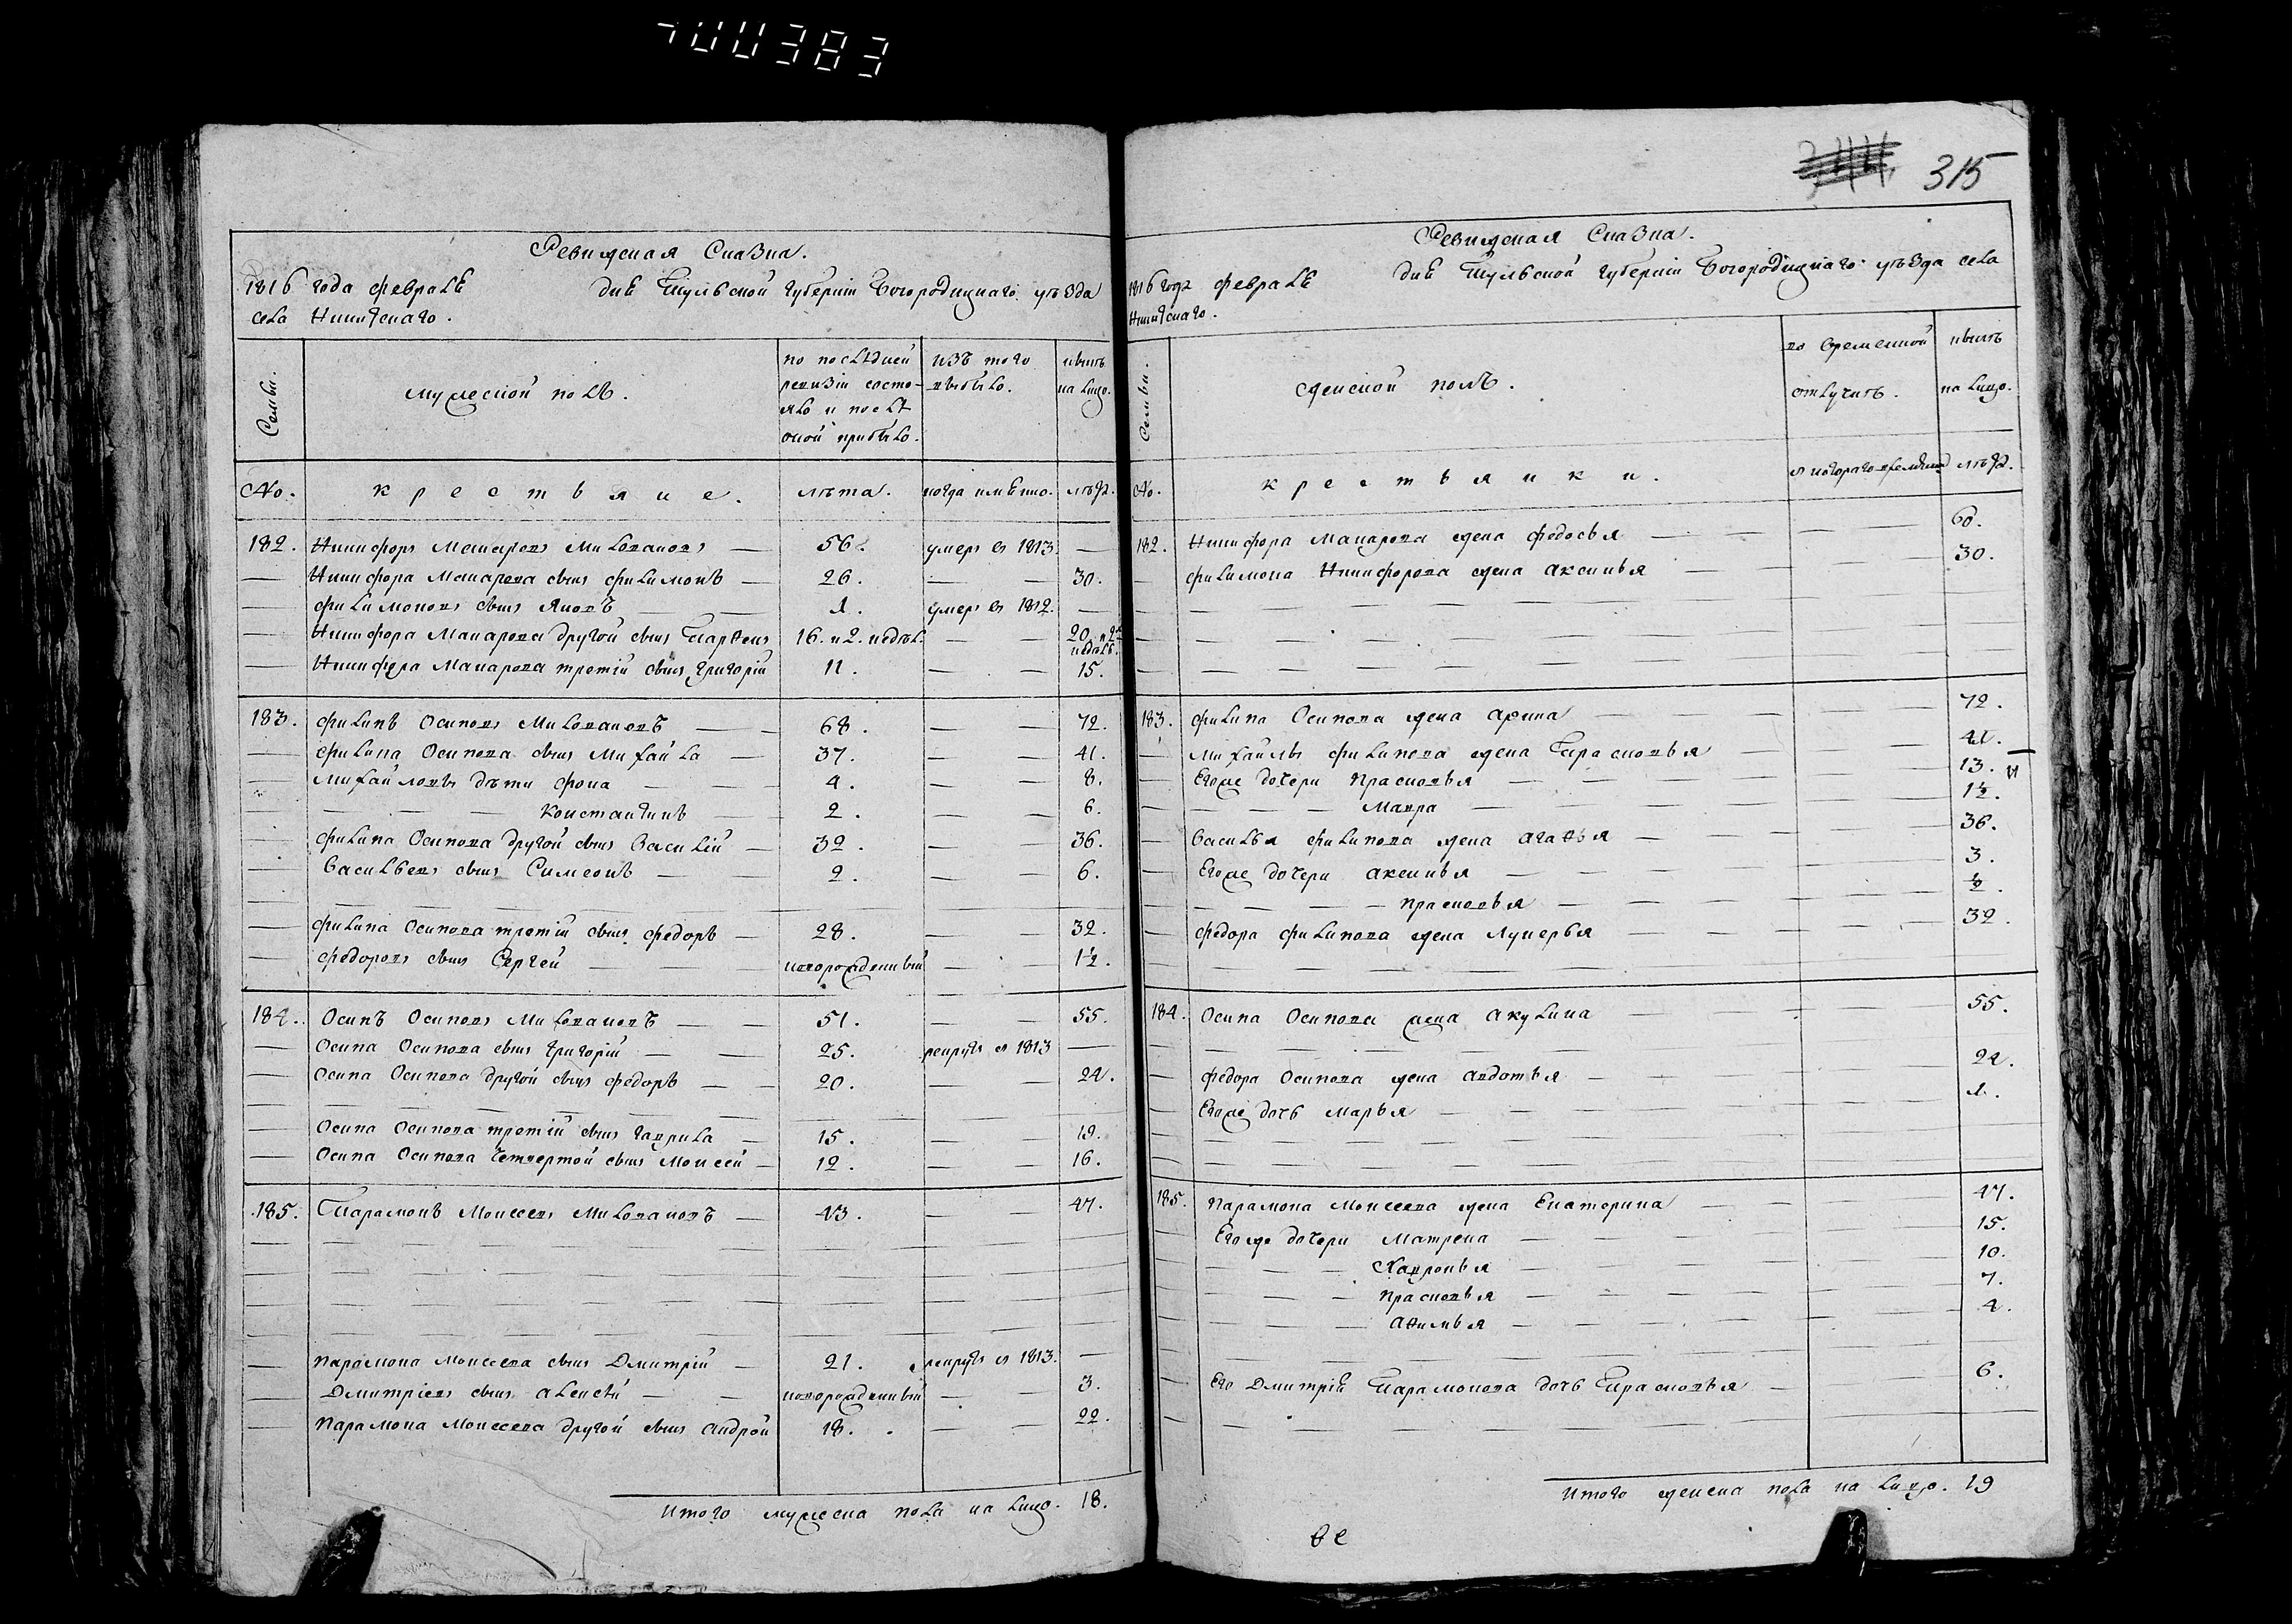 315
Ревижская Сказка.
1816 года февраля дня Тульской губернiи Богородицкаго уѣзда
села Никитскаго.
Семьи. мужеской полъ. по последней ревизiи состояло и после оной прибыло. изъ того выбыло. ныне на лицо.
No. крестьяне. лѣта. когда имянно. лѣта.
182. Никифоръ Макаровъ Миловановъ — 56. умеръ въ 1813 —
— Никифора Макарова сынъ филимонъ — 26. — — 30.
— филимоновъ сынъ Яковъ — — 1. умеръ въ 1812. —
— Никифора Макарова другой сынъ Парѳенъ 16. и 2. недѣл. — — 20. и 2 недѣль.
— Никифора Макарова третiй сынъ григорiй 11. — — 15.
183. филипъ Осиповъ Миловановъ — — 68. — — 72.
— филипа Осипова сынъ Михайла — 37. — — 41.
— михайловы дѣти фока — — — 4. — — 8.
— — — константинъ — — 2. — — 6.
— филипа Осипова другой сынъ Василiй — 32. — — 36.
— васильевъ сынъ Симеонъ — — 2. — — 6.
— филипа Осипова третiй сынъ федоръ — 28. — — 32.
— федоровъ сынъ Сергей — — — новорожденный — 1½.
184. Осипъ Осиповъ Миловановъ — — 51. — — 55.
— Осипа Осипова сынъ григорiй — — 25. рекрутъ въ 1813 —
— Осипа Осипова другой сынъ федоръ — — 20. — — 24.
— Осипа Осипова третiй сынъ гаврила — 15. — — 19.
— Осипа Осипова четвертой сынъ Моисей — 12. — — 16.
185. Парамонъ Моисеевъ Миловановъ — 43. — — 47.
— парамона моисеева сынъ Дмитрiй — 21. рекрутъ въ 1813. —
— Дмитрiевъ сынъ алексѣй — — новорожденный — — 3.
— парамона моисеева другой сынъ андрей 18. — — 22.
Итого мужеска пола на лицо. 18.
Ревижская Сказка.
1816 года февраля дня Тульской губернiи Богородицкаго уѣзда села
Никитскаго.
Семьи. женской полъ. во временной отлучкѣ. ныне на лицо.
No. крестьянки. съ котораго времяни лѣта.
182. Никифора Макарова жена федосья — — — 60.
— филимона Никифорова жена аксинья — — — 30.
183. филипа Осипова жена арина — — — 72.
— михайлы филипова жена Прасковья — — 41.
— Егоже дочери прасковья — — — 13.
— — — мавра — — — 12.
— василья филипова жена агаѳья — — — 36.
— Егоже дочери аксинья — — — 3.
— — — прасковья — — — ½.
— федора филипова жена Лукерья — — — 32.
184. Осипа Осипова жена акулина — — — 55.
— федора Осипова жена авдотья — — — 24.
— Егоже дочь марья — — — 1.
185. парамона моисеева жена Екатерина — — — 47.
Егоже дочери матрена — — — 15.
— — — Хавронья — — — 10.
— — — прасковья — — — 7.
— — — афимья — — — 4.
— Его Дмитрiя Парамонова дочь Прасковья — 6.
Итого женска пола на лицо. 19